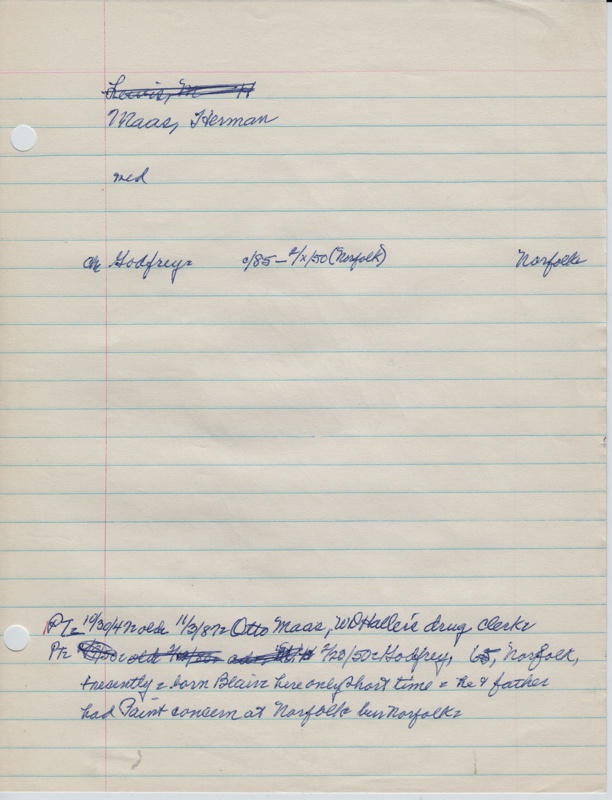 Maas, Herman
med
ch Godfrey= c/85 – 2/x/50 (Norfolk) Norfolk
PT= 10/30/4 11/3/87= Otto Maas, WD Haller's drug clerk=
PT= 2/23/50= Godfrey, 65, Norfolk,
recently = born Blair= here only short time = he & father
had Paint concern at Norfolk= bur Norfolk=